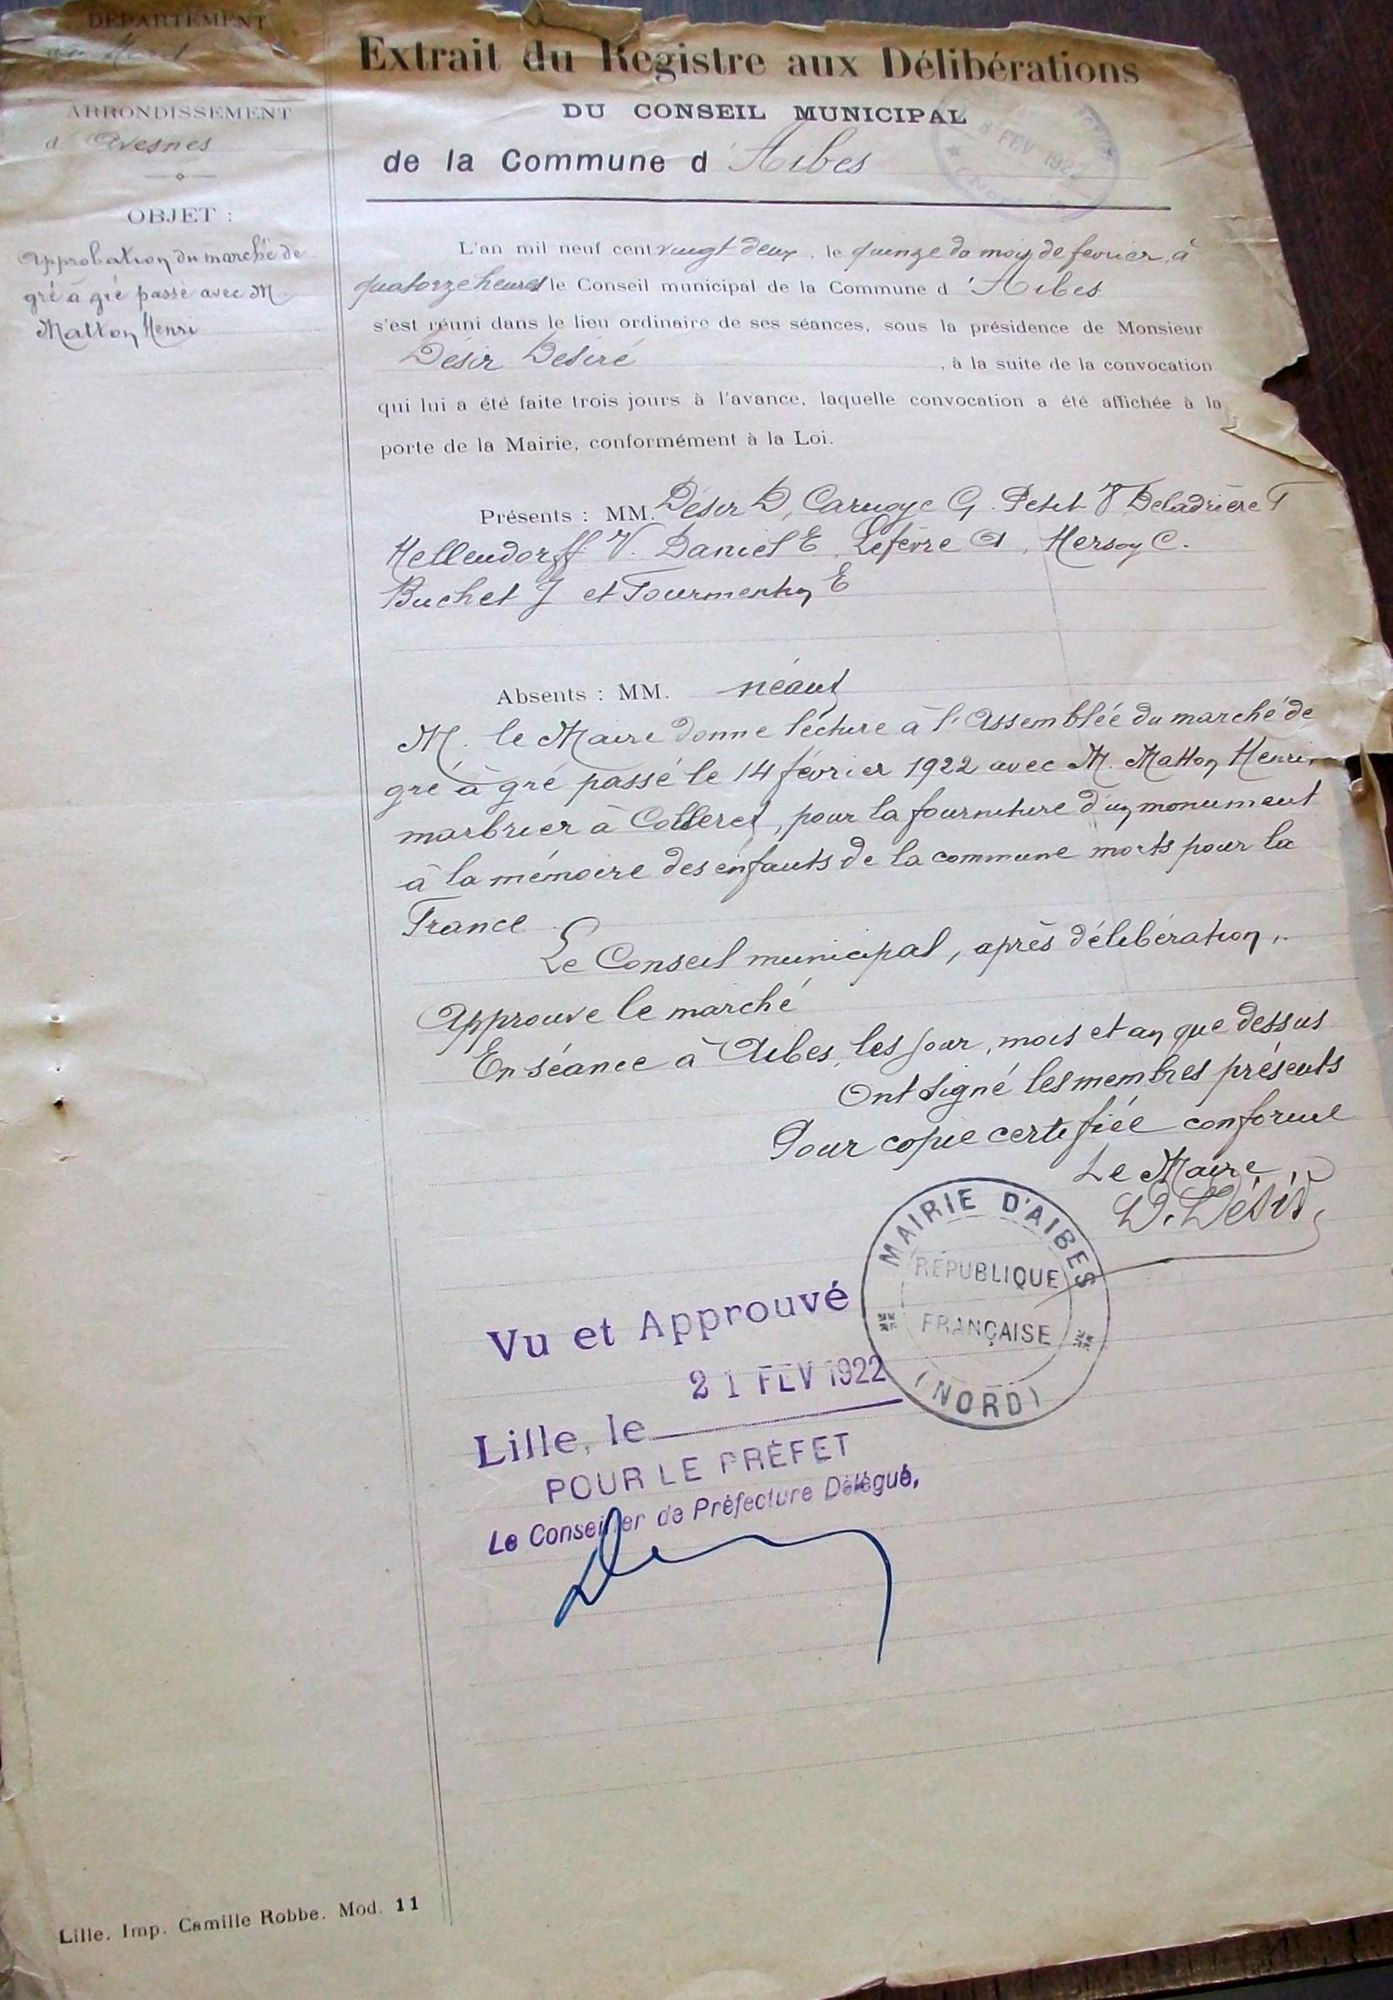 DÉPARTEMENT
du Nord
ARRONDISSEMENT
d'Avesnes
OBJET :
Approbation du marché de
gré à gré passé avec M.
Matton Henri
Extrait du Registre aux Délibérations
DU CONSEIL MUNICIPAL
de la Commune d'Aibes
FEV 192
L'an mil neuf cent vingt deux, le quinze du mois de février, à
quatorze heures le Conseil municipal de la Commune d'Aibes
s'est réuni dans le lieu ordinaire de ses séances, sous la présidence de Monsieur
Désir Désiré , à la suite de la convocation
qui lui a été faite trois jours à l'avance, laquelle convocation a été affichée à la
porte de la Mairie, conformément à la Loi.
Présents : MM. Désir D, Carnoye G. Petit V Deladrière T
Hellendorff V. Daniel E, Lefèvre A, Hersoy C.
Buchet J et Tourmenton E
Absents : MM. néant
M. le Maire donne lecture à l'Assemblée du marché de
gré à gré passé le 14 février 1922 avec M. Matton Henri,
marbrier à Colleret, pour la fourniture d'un monument
à la mémoire des enfants de la commune morts pour la
France
Le Conseil municipal, après délibération,
Approuve le marché
En séance à Aibes, les jour, mois et an que dessus
Ont signé les membres présents
Pour copie certifiée conforme
Le Maire,
D. Désir
MAIRIE D'AIBES
RÉPUBLIQUE
FRANÇAISE
(NORD)
Vu et Approuvé
21 FEV 1922
Lille, le
POUR LE PRÉFET
Le Conseiller de Préfecture Délégué,
Lille. Imp. Camille Robbe. Mod. 11